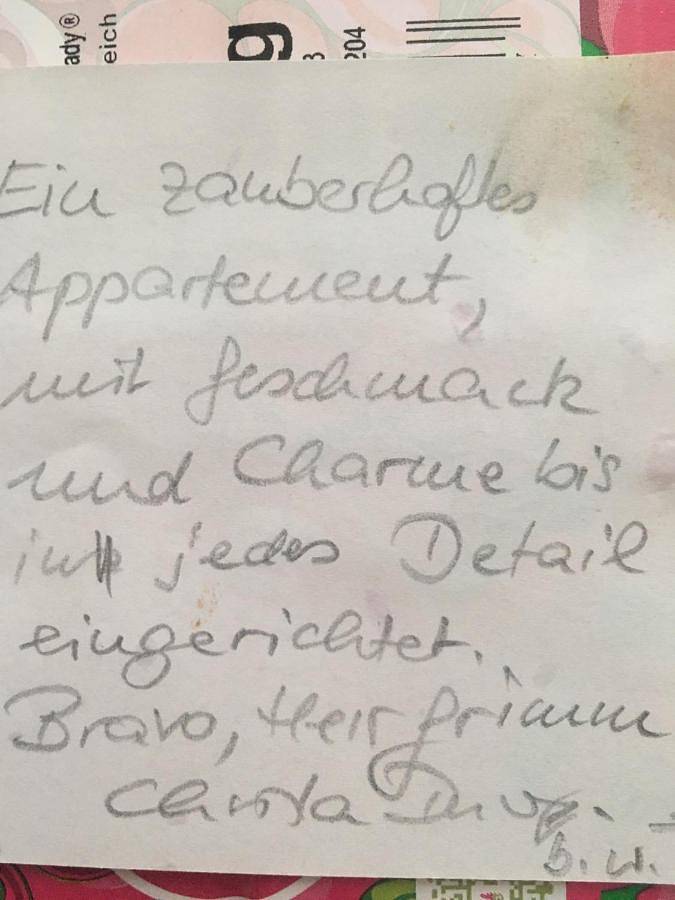 ady®
eich
g
204
Ein zauberhaftes
Appartement,
mit Geschmack
und Charme bis
in jedes Detail
eingerichtet.
Bravo, Herr Grimm
Christa
b. w.